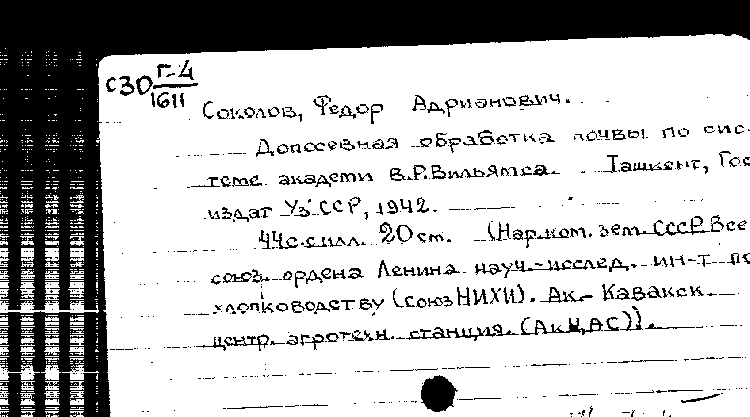 С30 Г-4
1611
Соколов, Федор Адрианович.
Допосевная обработка почвы по сис-
теме академи В.Р.Вильямса. Ташкент, Гос
издат УзССР, 1942.
44с.с илл. 20см. (Нар.ком. зем. СССР. Все
союз. ордена Ленина науч.-исслед. ин-т по
хлопководству (союзНИХИ). Ак-Кавакск.
центр. агротехн. станция. (АкЦАС)).